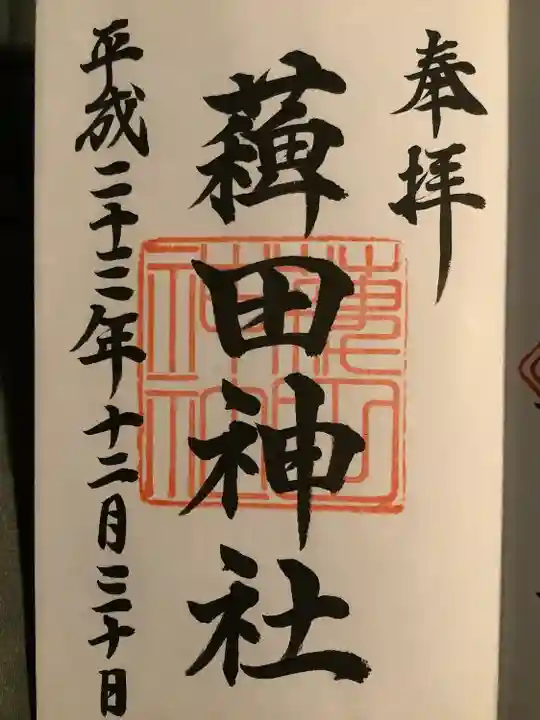 奉拝
薭田神社
平成二十二年十二月三十日